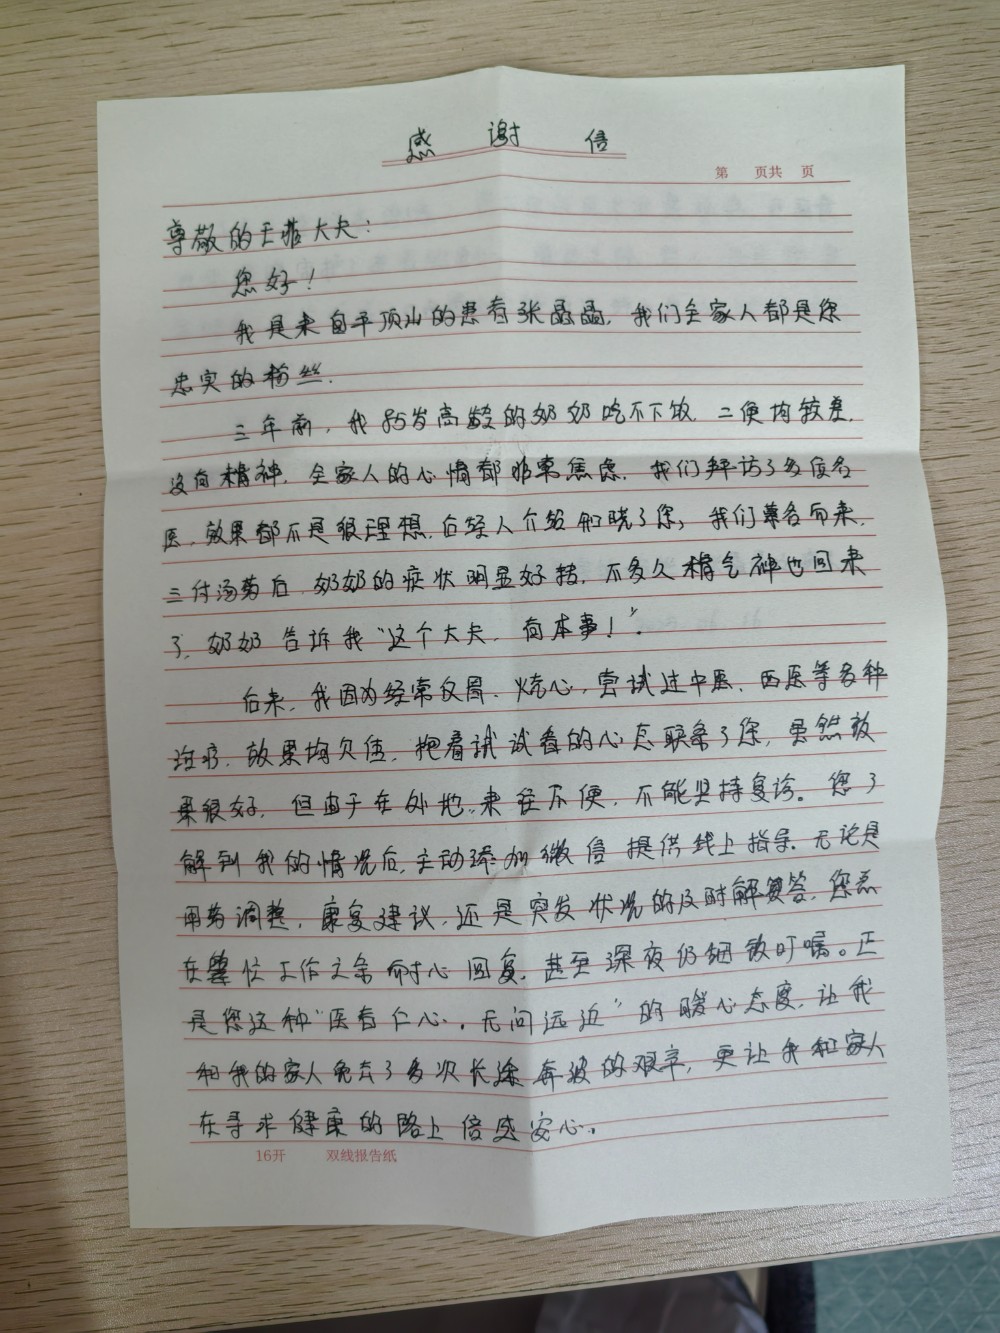 感谢信
第 页共 页
尊敬的王菲大夫：
您好！
我是来自平顶山的患者张晶晶，我们全家人都是您
忠实的粉丝。
三年前，我85岁高龄的奶奶吃不下饭，二便均较差，
没有精神，全家人的心情都非常焦虑，我们拜访了多位名
医，效果都不是很理想，后经人介绍知晓了您，我们慕名而来，
三付汤药后，奶奶的症状明显好转，不多久精气神也回来
了，奶奶告诉我“这个大夫，有本事！”。
后来，我因为经常反胃、烧心，尝试过中医、西医等多种
治疗，效果均欠佳，抱着试试看的心态联系了您，虽然效
果很好，但由于在外地，来往不便，不能坚持复诊。您了
解到我的情况后，主动添加微信提供线上指导，无论是
用药调整，康复建议，还是突发状况的及时解答，您总
在单位工作之余耐心回复，甚至深夜仍细致叮嘱。正
是您这种“医者仁心，无问远近”的暖心态度，让我
和我的家人免去了多次长途奔波的艰辛，更让我和家人
在寻求健康的路上倍感安心。
16开 双线报告纸